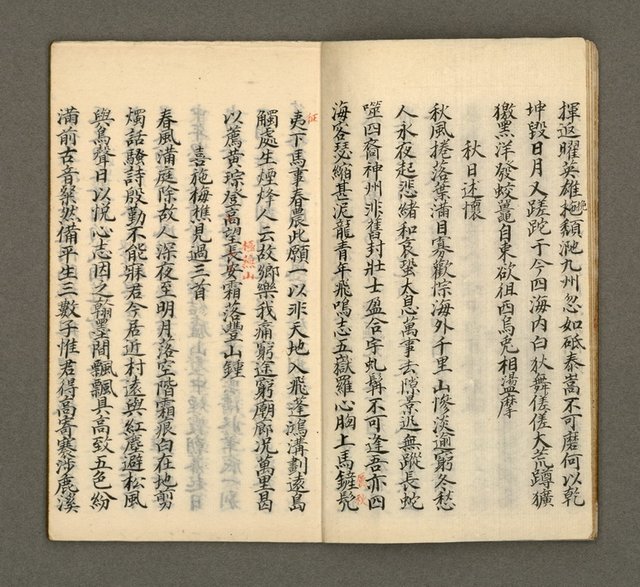 揮返曜英雄挽頹池九州忽如砥泰嵩不可磨何以乾
坤毀日月又蹉跎于今四海內白狄舞傞傞大荒蹲獷
獥黑洋發蛟鼉自東欲徂西烏兔相盪摩
秋日述懷
秋風捲落葉滿目寡歡悰海外千里山慘淡逾窮冬愁
人永夜起悲緒和哀蛩太息萬事去隙景逃無蹤長蛇
噬四裔神州非舊封壯士盈合宇虬髯不可逢吾亦四
海客琴縮甚泥龍青年飛鳴志五嶽羅心胸上馬鏟兇
夷下馬事春農此願一以非天地入飛蓬鴻溝劃遠島
觸處生煙烽人云故鄉樂我痛窮途窮廟廊況萬里曷
以薦黃琮登高望長安霜落豐山鐘
喜施梅樵見過三首
春風滿庭除故人深夜至明月落空階霜痕白在地剪
燭話騷詩殷勤不能寐君今居近村遠與紅塵避松風
與鳥聲日以悅心志因之翰墨間飄飄具高致五色紛
滿前古音粲然備平生三數子惟君得高寄寒沙鹿溪